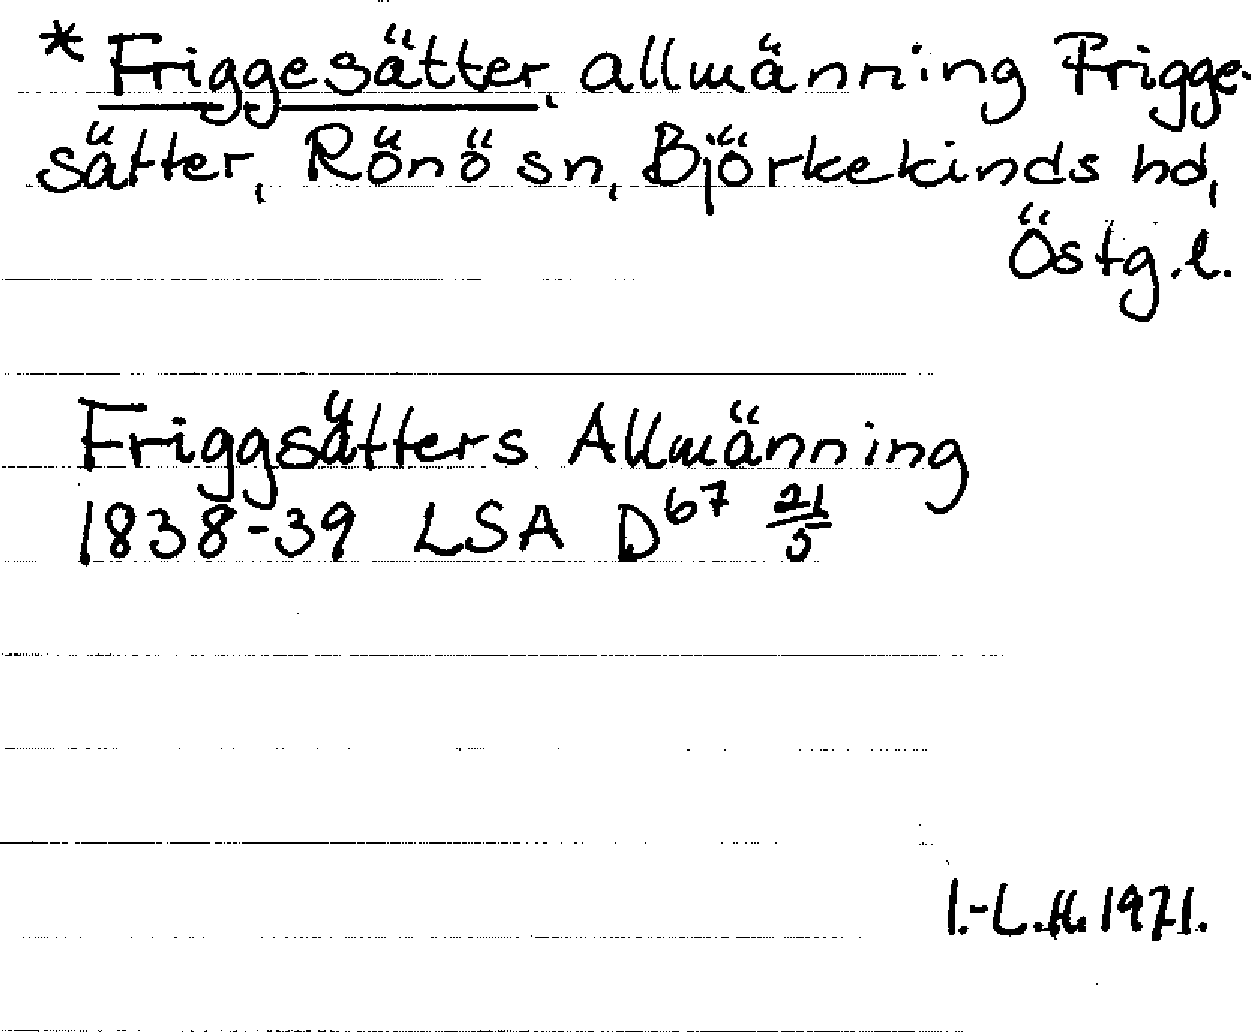 * Friggesätter, allmänning Frigge-
sätter, Rönö sn, Björkekinds hd,
Östg.l.
Friggsätters Allmänning
1838-39 LSA D67 21/5
I.-L.H. 1971.